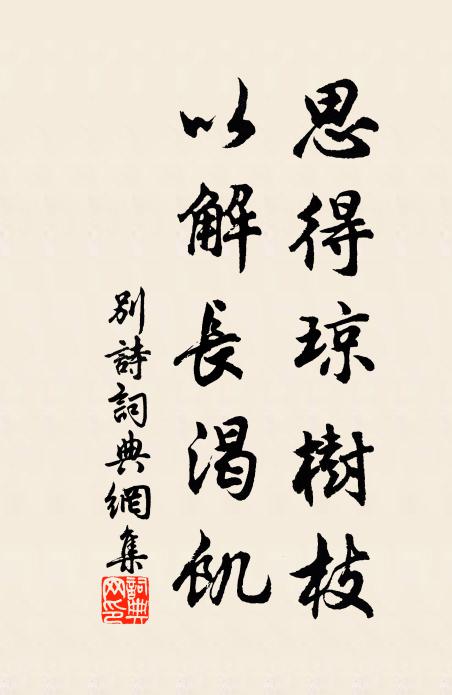 思得琼樹枝
以解長渴飢
別詩詞典網集
詞典
网印